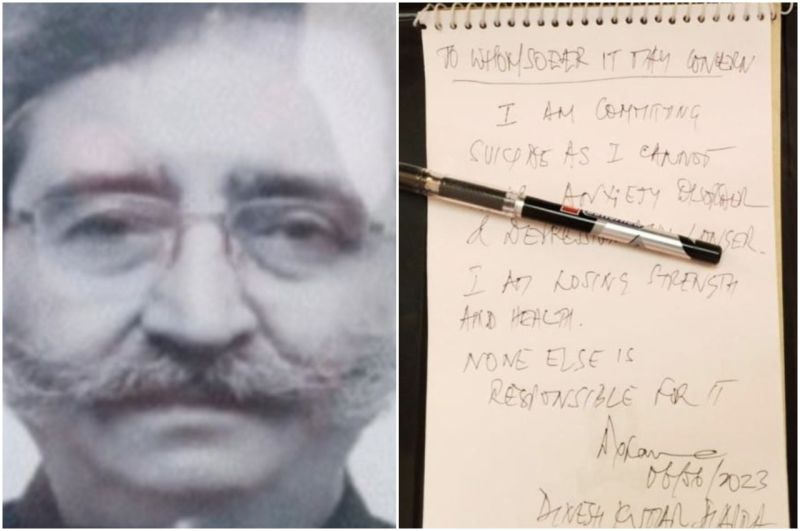 TO WHOMSOEVER IT MAY CONCERN
I AM COMMITING
SUICIDE AS I CANNOT
ANXIETY DISORDER
& DEPRESSION LONGER.
I AM LOSING STRENGTH
AND HEALTH.
NONE ELSE IS
RESPONSIBLE FOR IT
06/06/2023
DINESH KUMAR